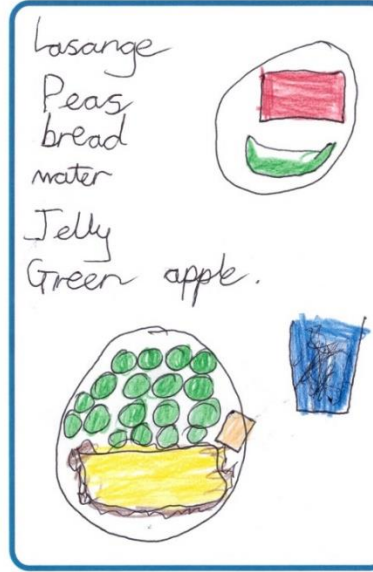 Lasange
Peas
bread
water
Jelly
Green apple.